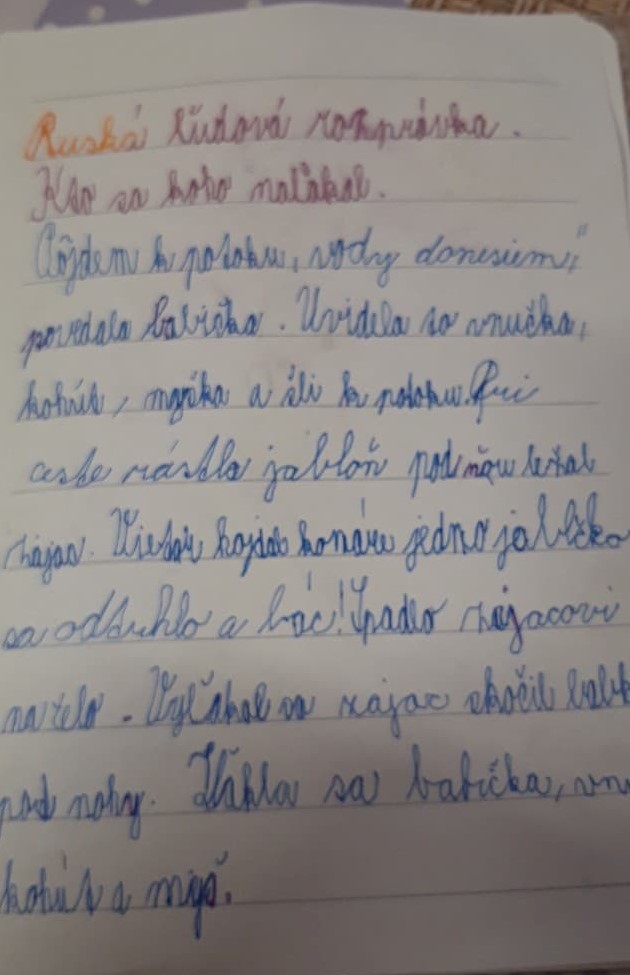 Ruská ľudová rozprávka.
Kto sa koho naľakal.
Pôjdem k potoku, vody donesiem,"
povedala babička. Uvidela so vnučka,
kohút, myška a šli k potoku. Pri
ceste rástla jabloň pod ňou ležal
zajac. Vietor konáre jedno jabĺčko
sa odtrhlo a bác! Spadlo zajacovi
na čelo. Vyľakal sa zajac skočil babk
pod nohy. Zľakla sa babička, vnu
kohút a myš.